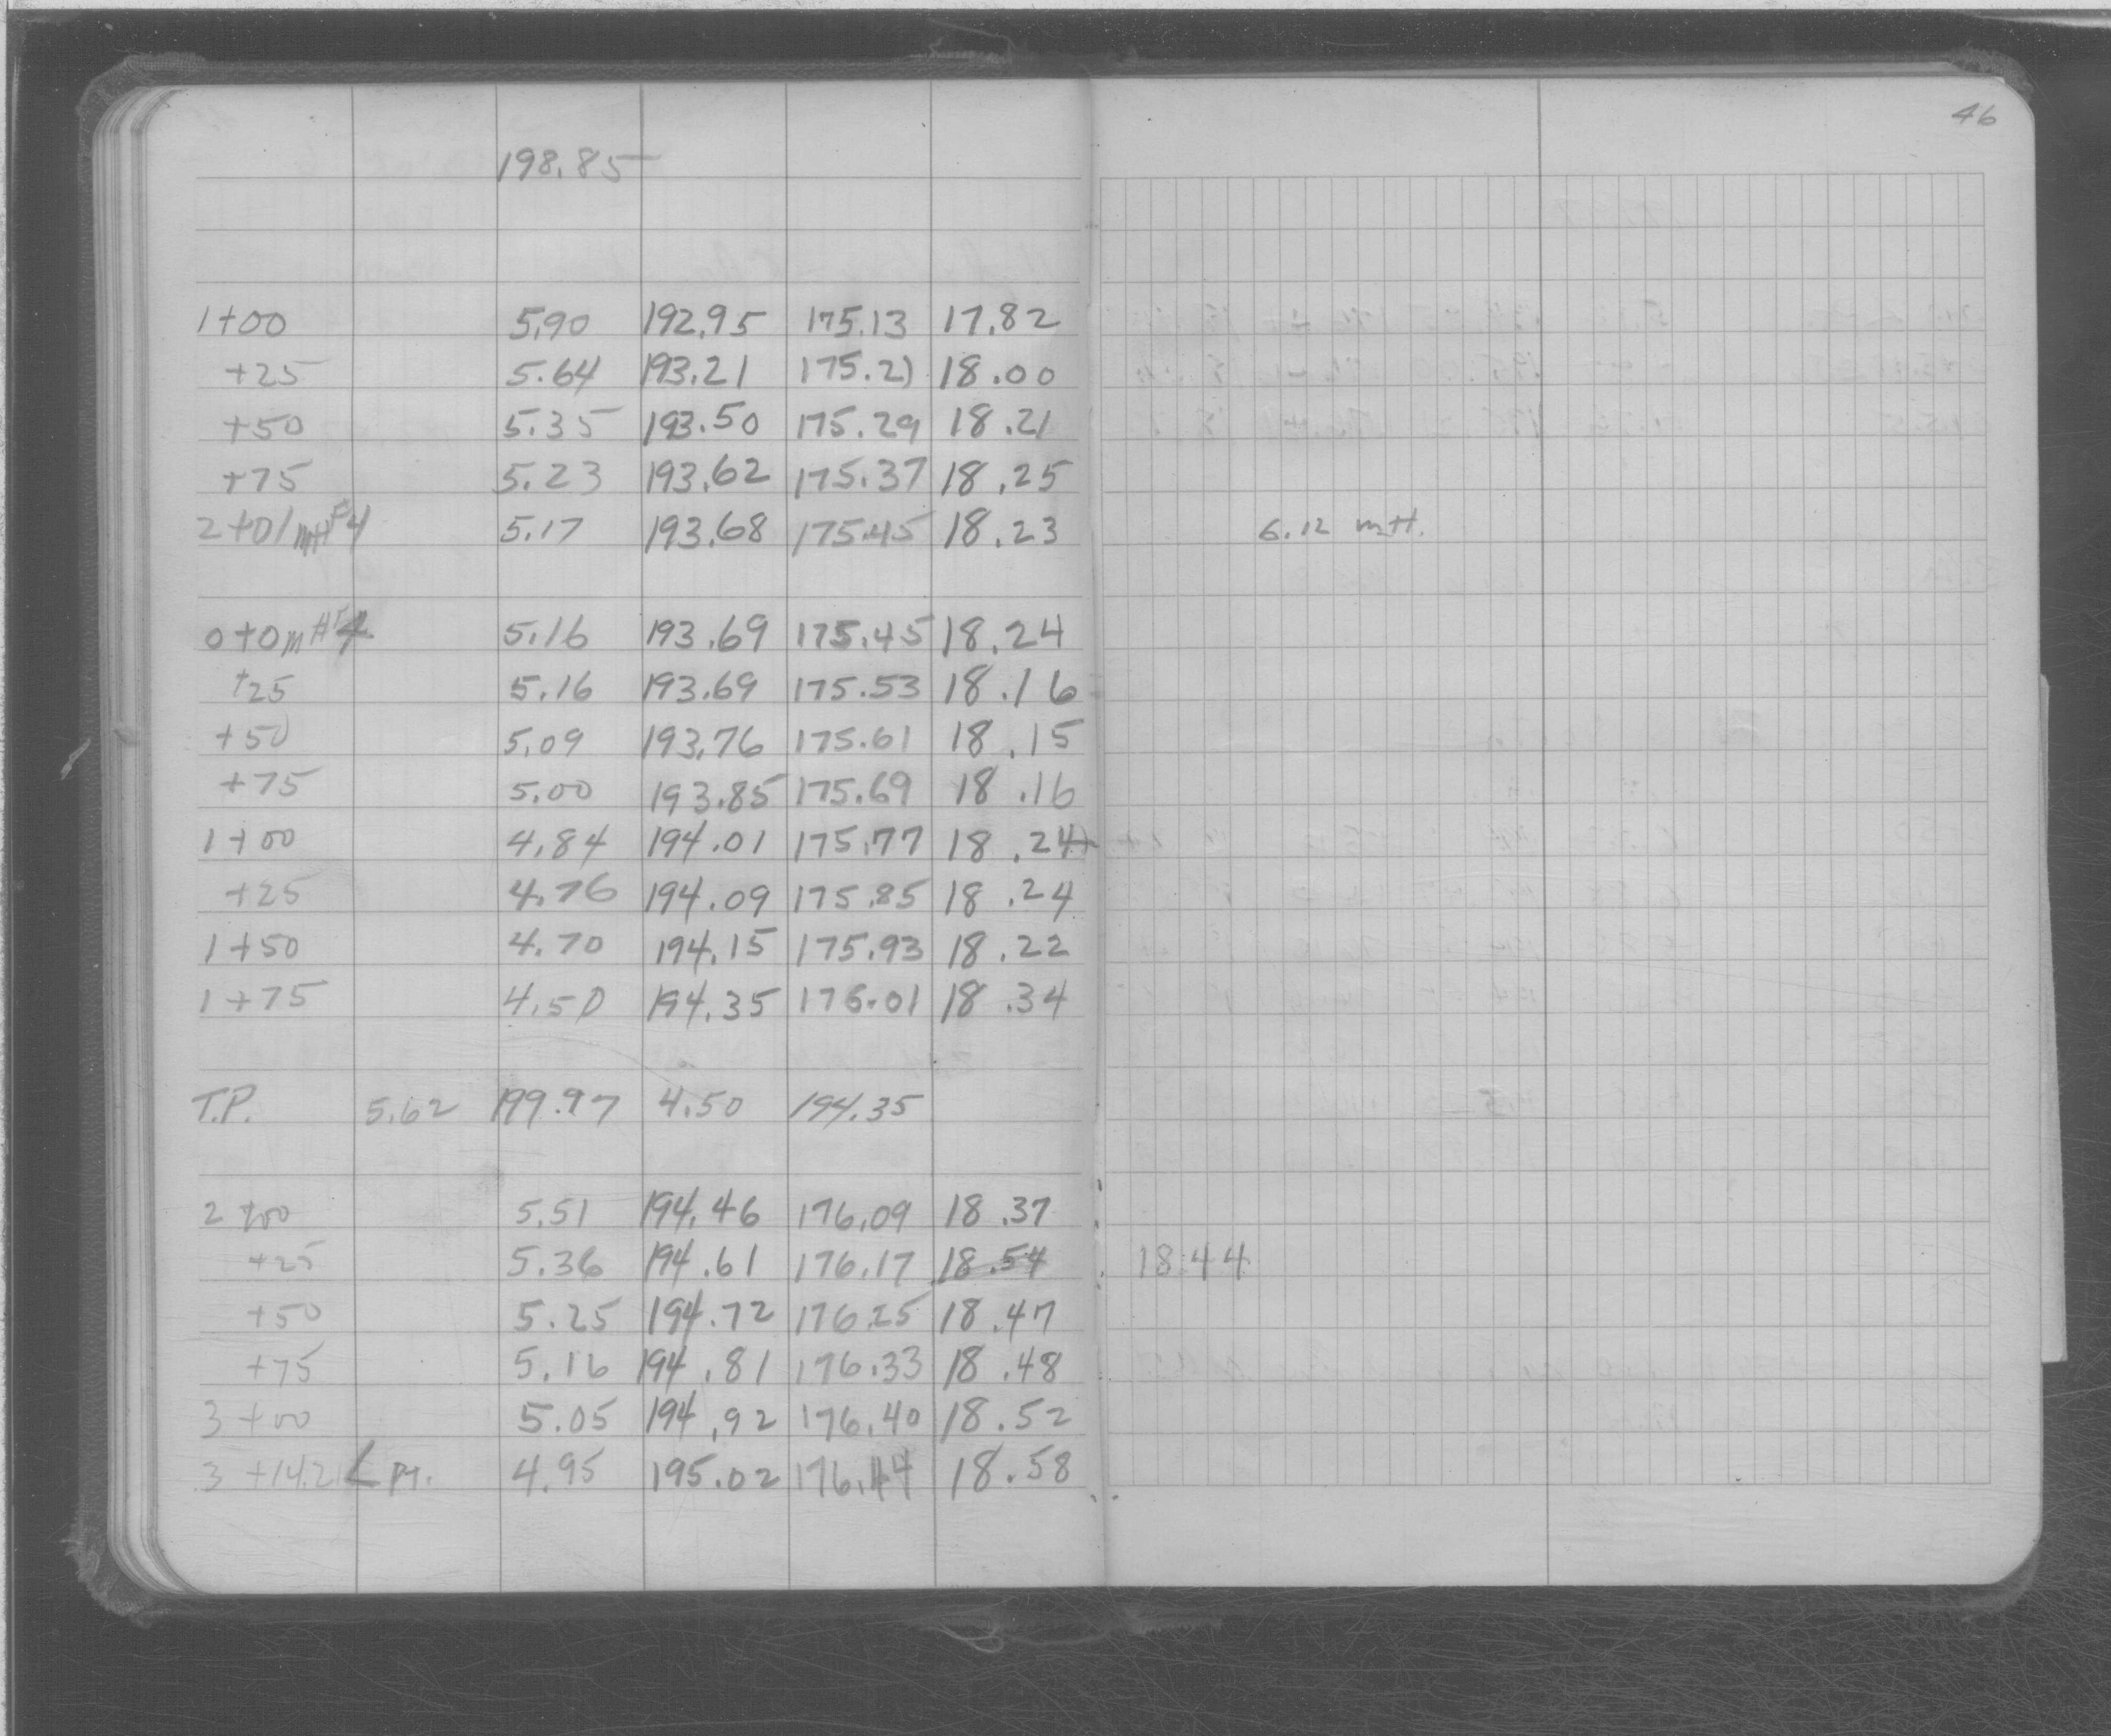 46
198.85
1+00 5.90 192.95 175.13 17.82
+25 5.64 193.21 175.21 18.00
+50 5.35 193.50 175.29 18.21
+75 5.23 193.62 175.37 18.25
2+01 MH #4 5.17 193.68 175.45 18.23 6.12 M.H.
0+0 MH #4 5.16 193.69 175.45 18.24
+25 5.16 193.69 175.53 18.16
+50 5.09 193.76 175.61 18.15
+75 5.00 193.85 175.69 18.16
1+00 4.84 194.01 175.77 18.24
+25 4.76 194.09 175.85 18.24
1+50 4.70 194.15 175.93 18.22
1+75 4.50 194.35 176.01 18.34
T.P. 5.62 199.97 4.50 194.35
2+00 5.51 194.46 176.09 18.37
+25 5.36 194.61 176.17 18.54 18.44
+50 5.25 194.72 176.25 18.47
+75 5.16 194.81 176.33 18.48
3+00 5.05 194.92 176.40 18.52
3+14.21 ∠ Pt. 4.95 195.02 176.44 18.58